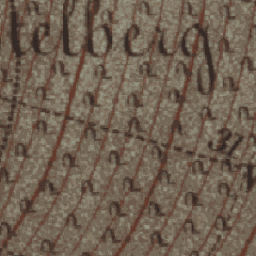 telberg
31